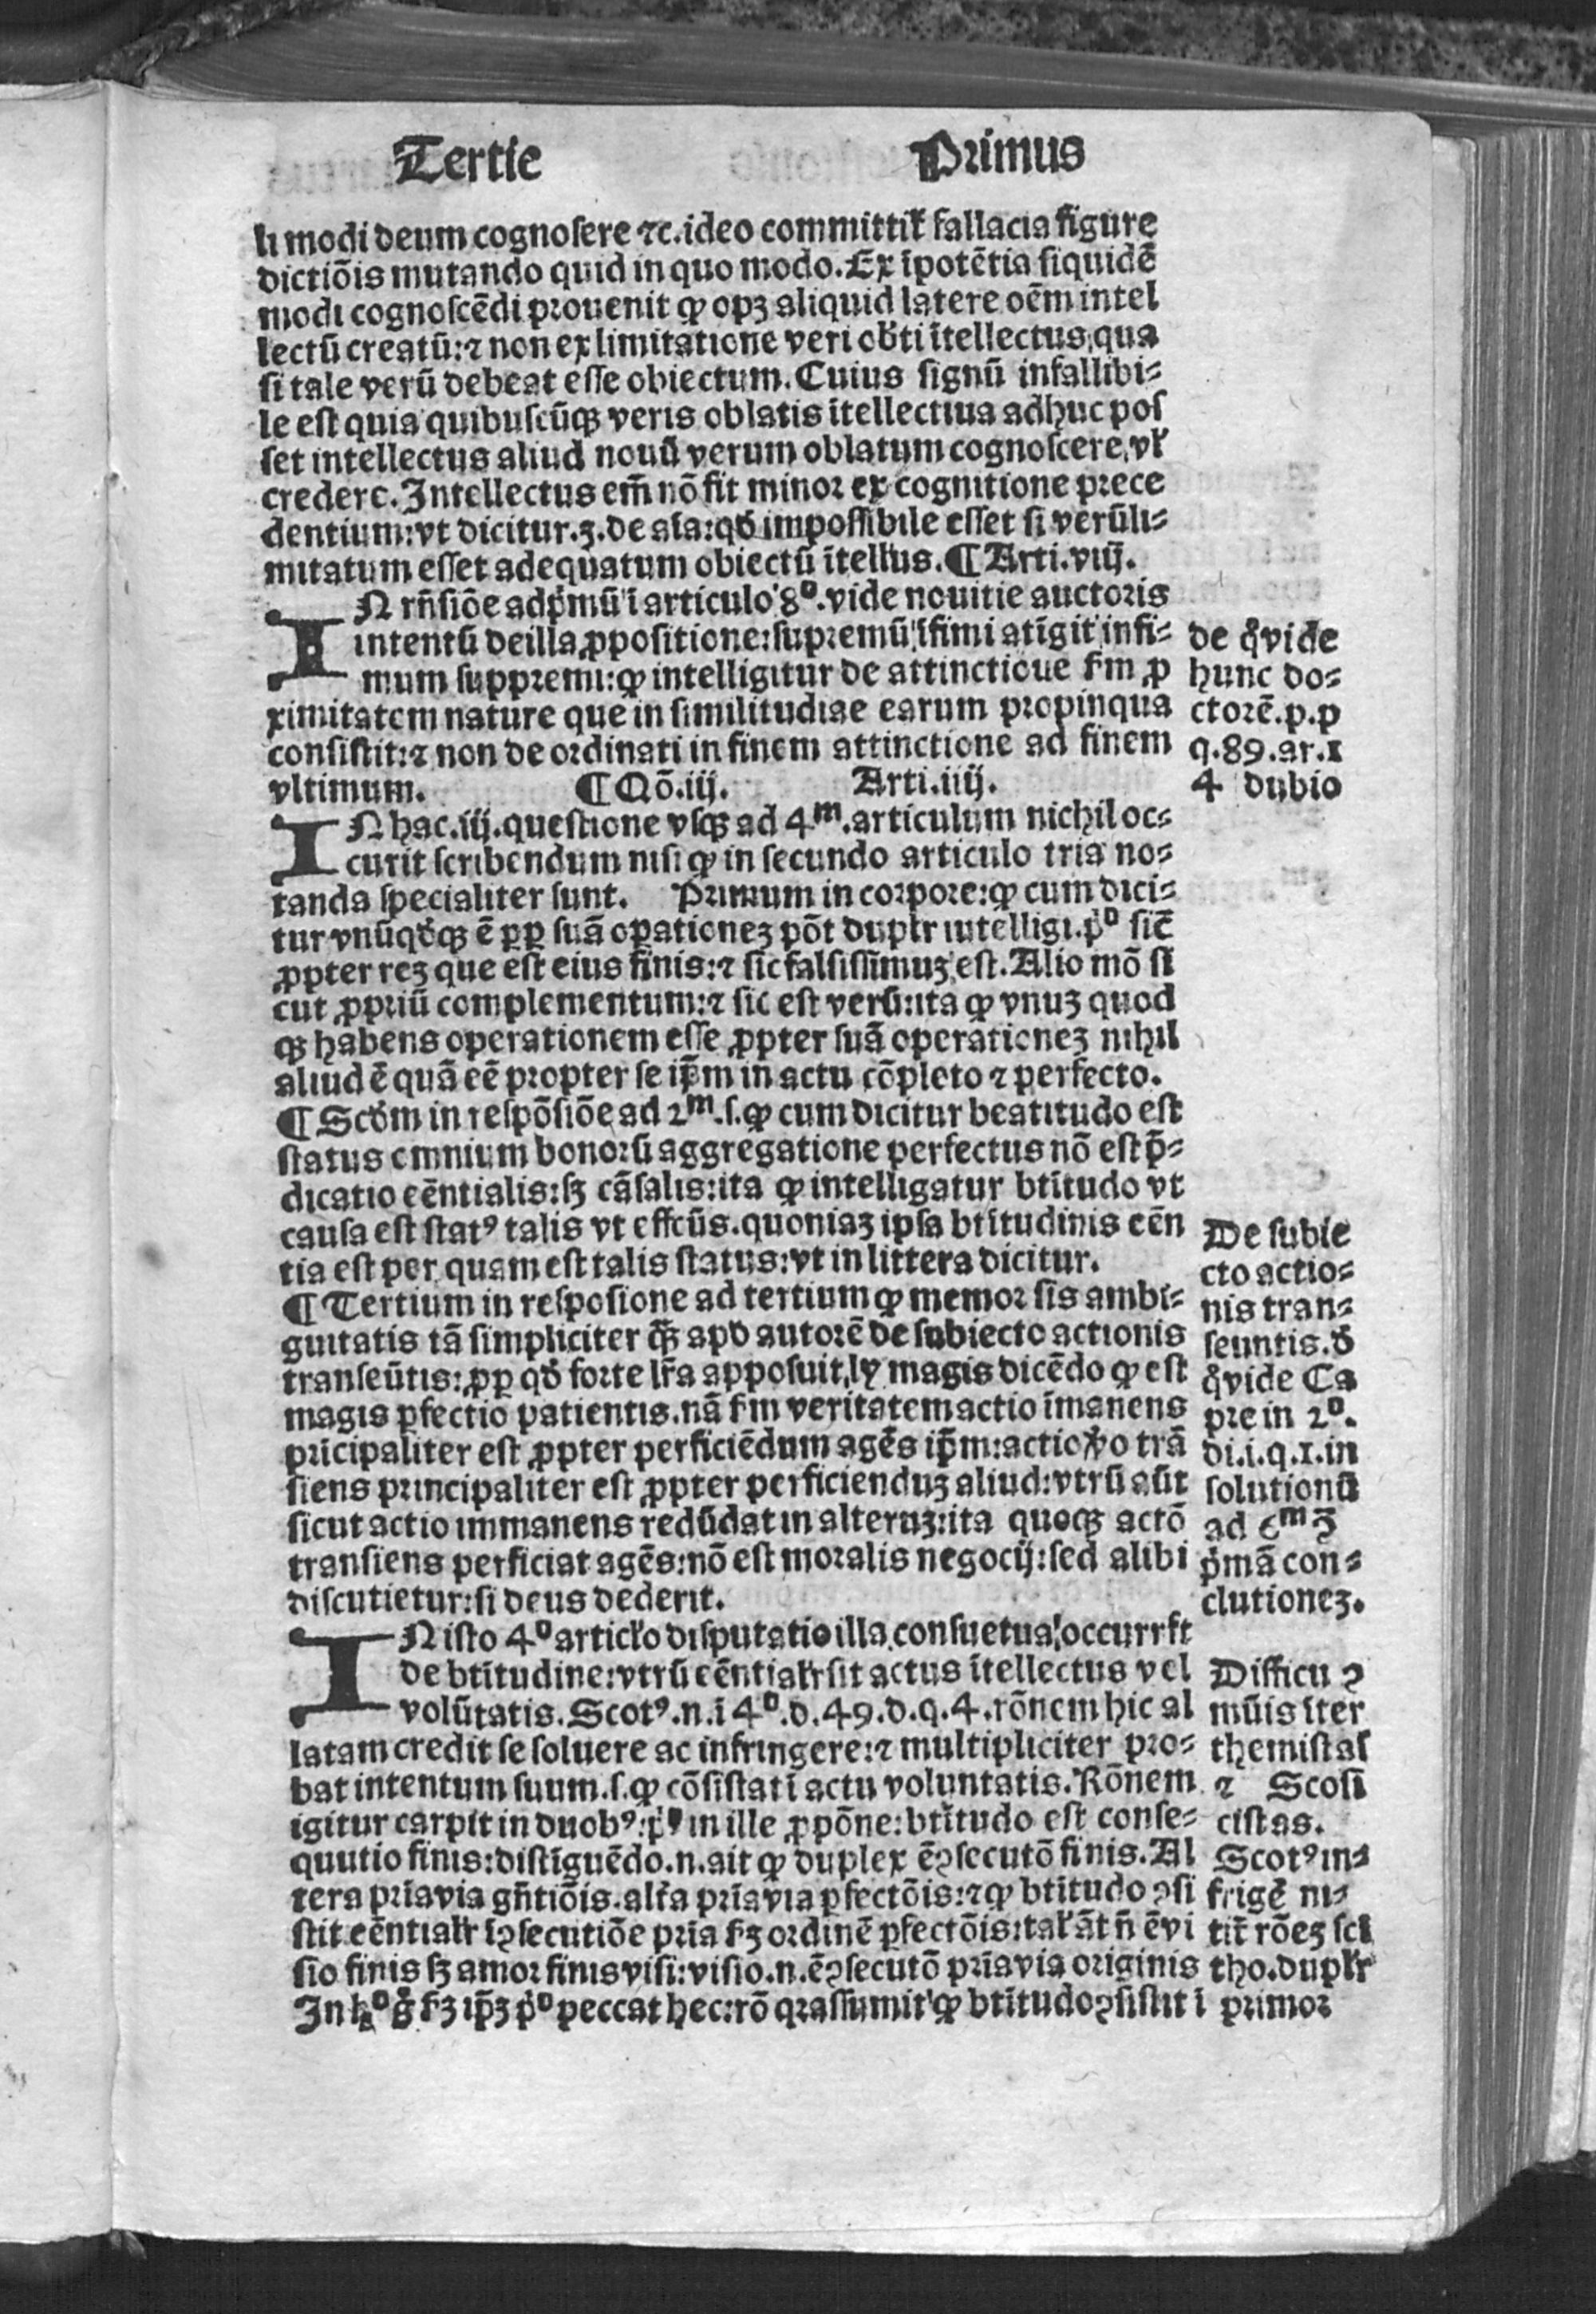 Tertie Primus
li modi deum cognosere ⁊c. ideo committit᷑ fallacia figure
dictiõis mutando quid in quo modo. Ex ĩpotẽtia siquidẽ
modi cognoscẽdi prouenit ꝙ opꝫ aliquid latere oẽm intel
lectũ creatũ: ⁊ non ex limitatione veri obti ĩtellectus, qua
si tale verũ debeat esse obiectum. Cuius signũ infallibi⸗
le est quia quibuscũqꝫ veris oblatis ĩtellectiua adhuc pos
set intellectus aliud nouũ verum oblatum cognoscere, vl̓
credere. Intellectus em̃ nõ fit minor ex cognitione prece
dentium: vt dicitur .3. de aĩa: qđ impossibile esset si verũ li⸗
mitatum esset adequatum obiectũ ĩtell'us. ¶ Arti. viij.
IN rñsiõe ad pͥmũ ĩ articulo 8º. vide nouitie auctoris
intentũ de illa ꝓpositione: supremũ ĩfimi atĩgit infi⸗
mum suppremi: ꝙ intelligitur de attinctioue ẜm ꝓ
ximitatem nature que in similitudiae earum propinqua
consistit: ⁊ non de ordinati in finem attinctione ad finem
vltimum. ¶ Qõ. iij. Arti. iiij.
IN hac .iij. questione vsqꝫ ad 4ᵐ. articulum nichil oc⸗
curit scribendum nisi ꝙ in secundo articulo tria no⸗
tanda specialiter sunt. Primum in corpore: ꝙ cum dici⸗
tur vnũqđqꝫ ẽ ꝓp suã oꝑationeꝫ põt duplr̓ iutelligi. pͥº sic̃
ꝓpter reꝫ que est eius finis: ⁊ sic falsissimuꝫ est. Alio mõ si
cut ꝓpriũ complementum: ⁊ sic est verũ: ita ꝙ vnuꝫ quod
qꝫ habens operationem esse ꝓpter suã operationeꝫ nihil
aliud ẽ quã eẽ propter se ip̃m in actu cõpleto ⁊ perfecto.
¶ Scđm in respõsiõe ad 2ᵐ. s. ꝙ cum dicitur beatitudo est
status cmnium bonorũ aggregatione perfectus nõ est p̃⸗
dicatio eẽntialis: sꝫ cãsalis: ita ꝙ intelligatur btĩtudo vt
causa est statꝰ talis vt effcũs. quoniaꝫ ipsa btĩtudinis eẽn
tia est per quam est talis status: vt in littera dicitur.
¶ Tertium in resposione ad tertium ꝙ memor sis ambi⸗
guitatis tã simpliciter q̃ꝫ apđ autorẽ de subiecto actionis
transeũtis: ꝓp qđ forte lr̃a apposuit, ly magis dicẽdo ꝙ est
magis ꝑfectio patientis. nã ẜm veritatem actio ĩmanens
prĩcipaliter est ꝓpter perficiẽdum agẽs ip̃m: actio v̊o trã
siens principaliter est ꝓpter perficienduꝫ aliud: vtrũ aũt
sicut actio immanens redũdat in alteruꝫ: ita quoqꝫ actõ
transiens perficiat agẽs: nõ est moralis negocij: sed alibi
discutietur: si deus dederit.
IN isto 4º articl̓o disputatio illa consuetua occurrſt
de btĩtudine: vtrũ eẽntialr̓ sit actus ĩtellectus vel
volũtatis. Scotꝰ. n. ĩ 4º. d. 49. d. q. 4. rõnem hic al
latam credit se soluere ac infringere: ⁊ multipliciter pro⸗
bat intentum suum. s. ꝙ cõsistat ĩ actu voluntatis. Rõnem
igitur carpit in duobꝰ: pͥꝰ in ille ꝓpõne: btĩtudo est conse⸗
quutio finis: distĩguẽdo. n. ait ꝙ duplex ẽ ꝯsecutõ finis. Al
tera prĩa via gñtiõis. alr̃a prĩa via ꝑfectõis: ⁊ ꝙ btĩtudo ꝯsi
stit eẽntialr̓ ĩ ꝯsecutiõe prĩa ẜꝫ ordinẽ ꝑfectõis: tal̓ ãt ñ ẽ vi
sio finis sꝫ amor finis visi: visio. n. ẽ ꝯsecutõ prĩa via originis
peccat hec: rõ ꝙ btĩtudo ꝯsistit ĩ
de q̊ vide
hunc do⸗
ctorẽ. p. p
q. 89. ar. 1
4 dubio
De subie
cto actio⸗
nis tran⸗
seuntis. đ
q̊ vide Ca
pre in 2º.
di. i. q. 1. in
solutionũ
ad 6ᵐ ꝫ
pͥmã con⸗
clutioneꝫ.
Difficu ꝯ
mũis ĩter
themistas
⁊ Scosi
cistas.
Scotꝰ in⸗
frigẽ ni⸗
tit᷑ rõeꝫ sci
tho. duplr̓
primor